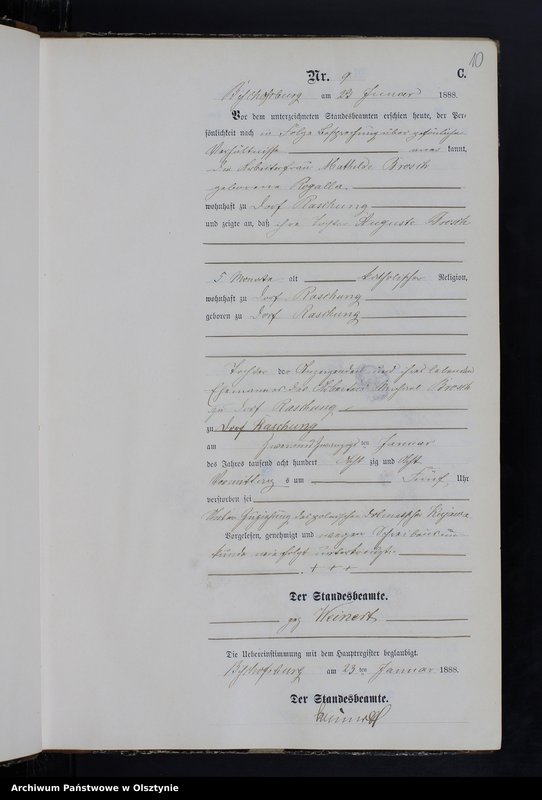 10
Nr. 9 C.
Bischofsburg am 23 Januar 1888.
Vor dem unterzeichneten Standesbeamten erschien heute, der Per-
sönlichkeit nach in Folge Besprechung über persönliche
Verhältnisse kannt,
die Arbeiterfrau Mathilde Brosch
geborene Rogalla
wohnhaft zu Dorf Raschung
und zeigte an, daß ihre Tochter Auguste Brosch
5 Monate alt katholischer Religion,
wohnhaft zu Dorf Raschung
geboren zu Dorf Raschung
Tochter der Anzeigenden und ihres lebenden
Ehemannes des Arbeiters Brosch
zu Dorf Raschung
zu Dorf Raschung
am zweiundzwanzigsten Januar
des Jahres tausend acht hundert acht zig und acht
Vormittags um fünf Uhr
verstorben sei
Unter Zuziehung des polnischen Dolmetscher
Vorgelesen, genehmigt und wegen Schreibensun-
kunde wie folgt unterkreuzt.
+ + +
Der Standesbeamte.
gez Weinert
Die Uebereinstimmung mit dem Hauptregister beglaubigt.
Bischofsburg am 23 ten Januar 1888.
Der Standesbeamte.
Weinert
Archiwum Państwowe w Olsztynie